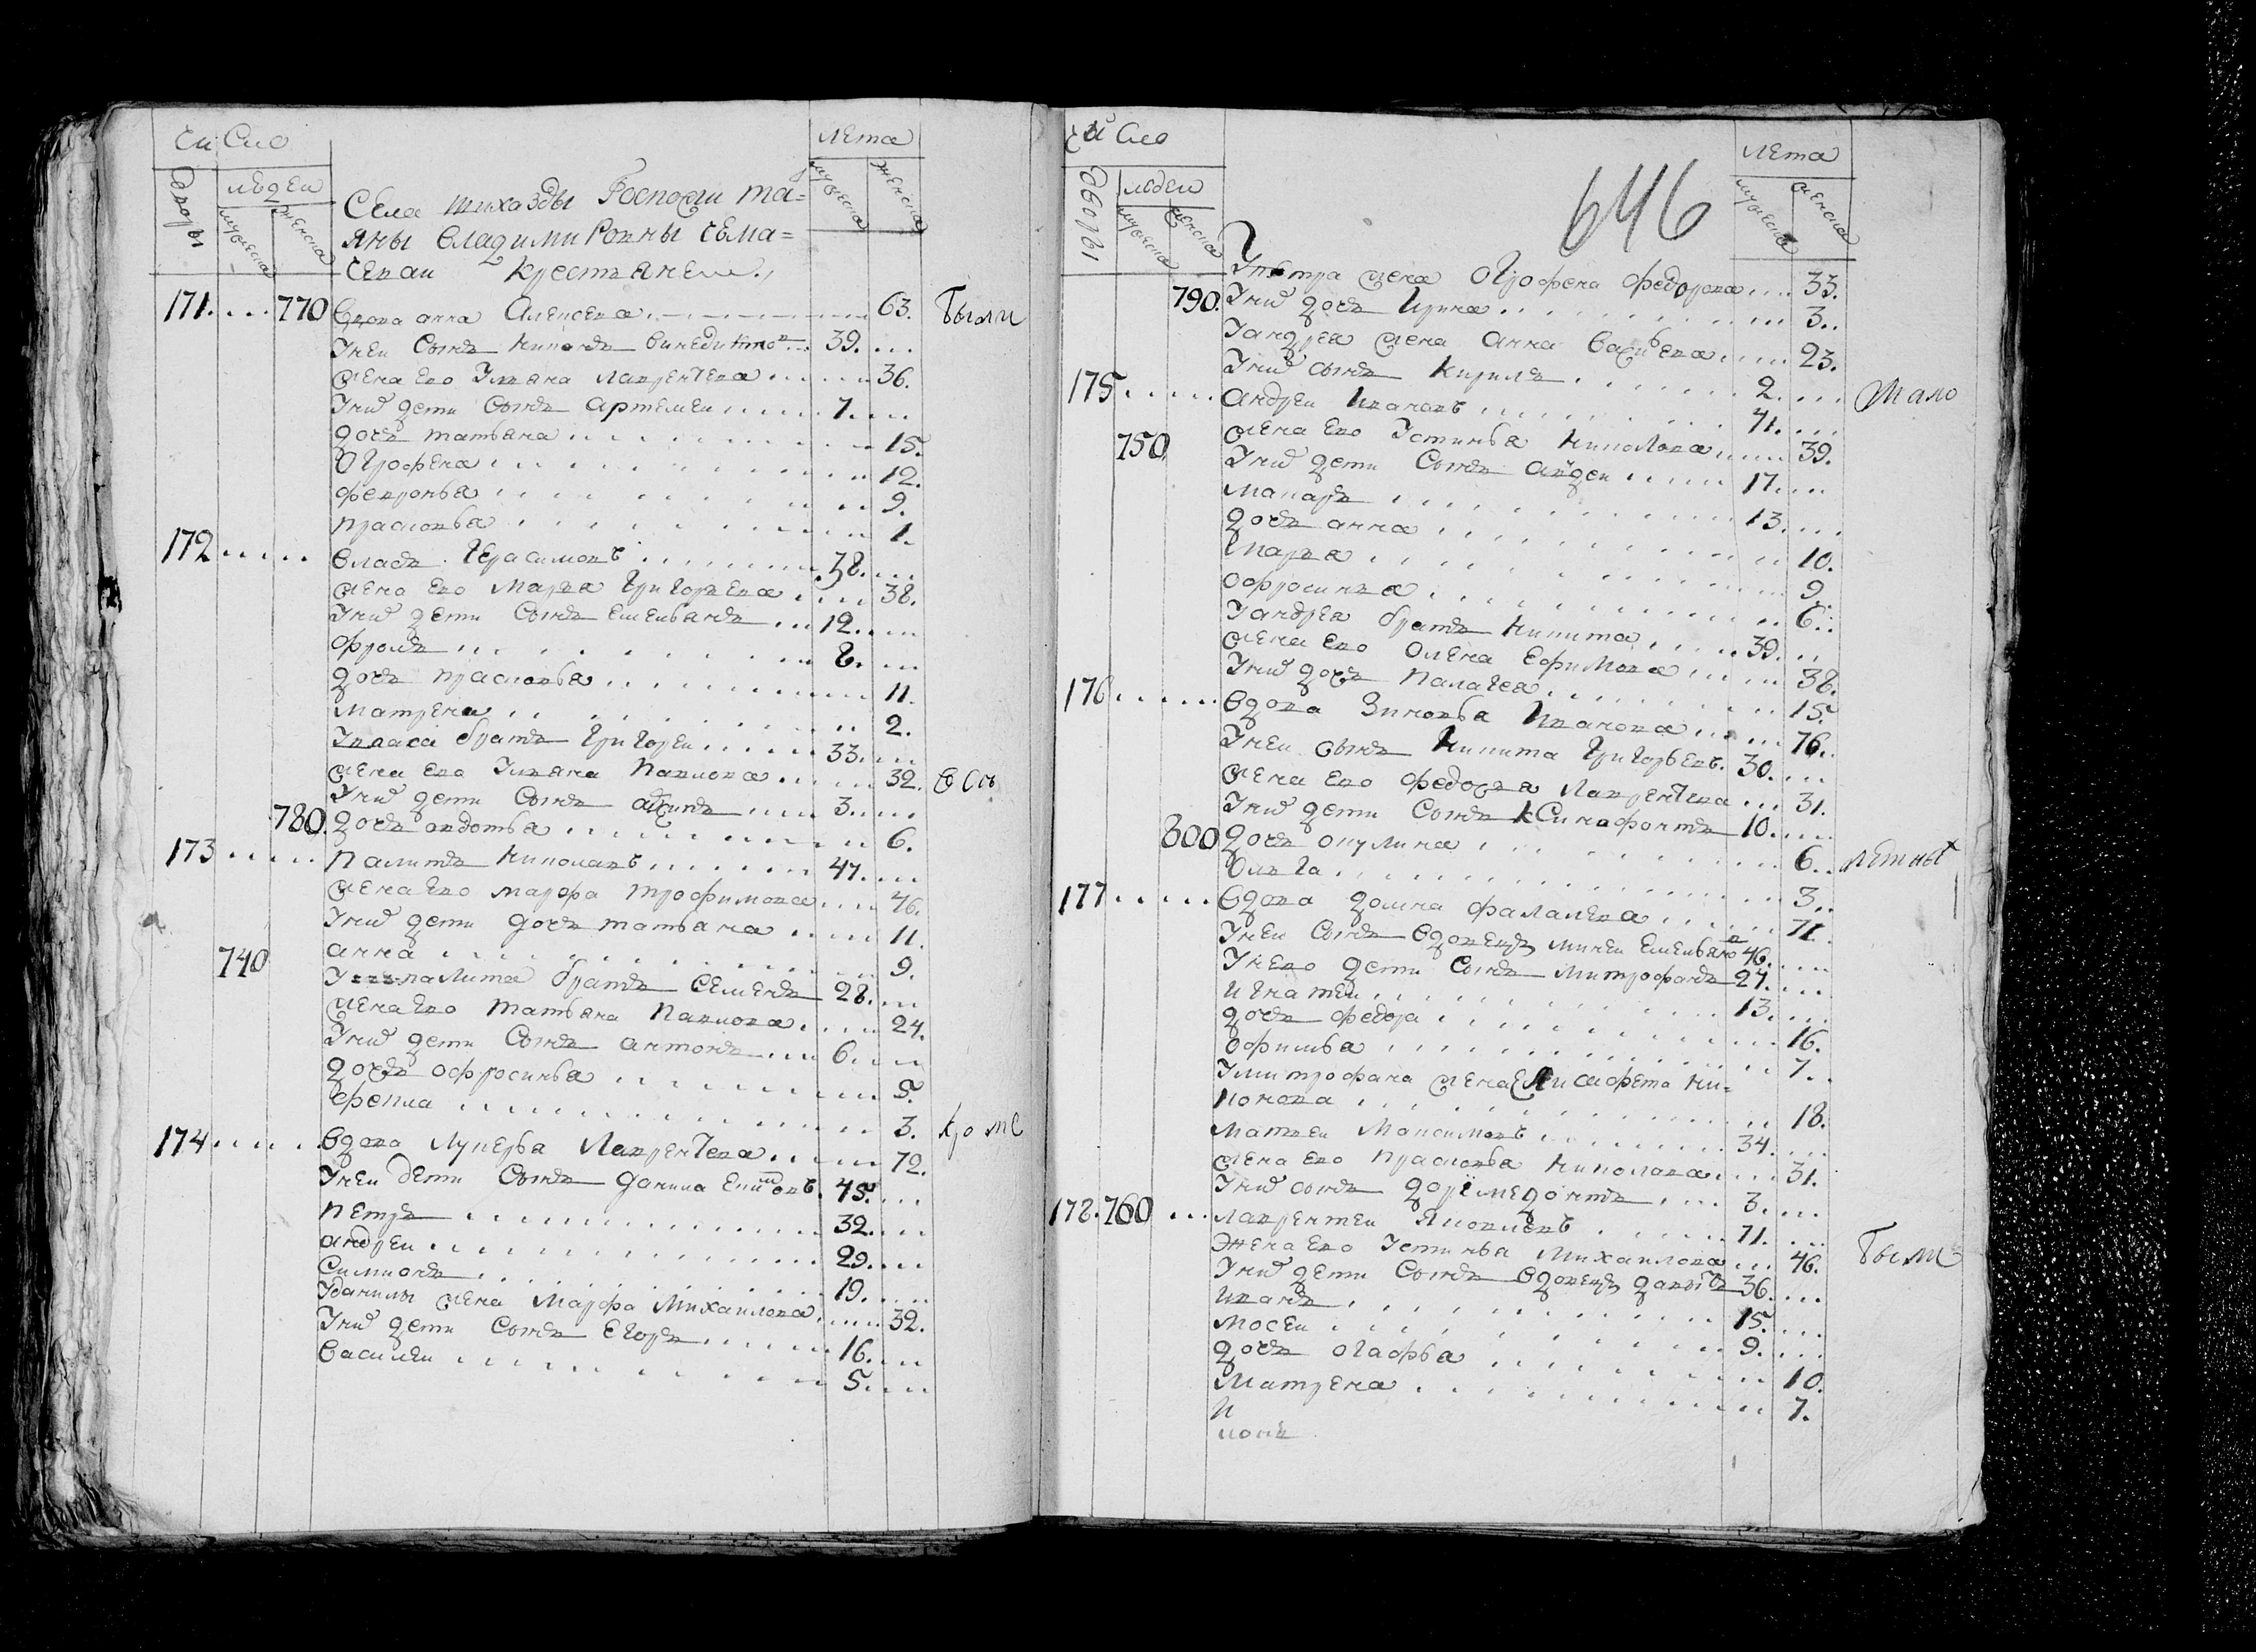 чи Сло
лета
дворы
людеи
мужеска
женска
мужеска
женска
Села тихазды Госпожи та=
яны владимировны
крестьянеж
171. 770 вдова анна Алексеева 63. Были
Унеи Сынъ никонъ 39.
жена ево Ульяна лаврентева 36.
Уних дети Сынъ артемеи 7.
дочь татьяна 15.
Огрофена 12.
февронья 9.
прасковья 1.
172 власъ Герасимовъ 38.
жена ево Марья григорьева 38.
Уних дети Сынъ емельянъ 12.
фролъ 8.
дочь прасковья 11.
матрена 2.
Увласа братъ григореи 33.
жена ево Ульяна Павлова 32. вси
Уних дети Сынъ 3.
780. дочь авдотья 6.
173 Палитъ николаевъ 47.
жена ево марфа трофимова 46.
Уних дети дочь татьяна 11.
740 анна 9.
палита братъ Семенъ 28.
жена ево татьяна Павлова 24.
Уних дети Сынъ антонъ 6.
дочь офросинья 5.
фекла 3. кроме
174 вдова лукерья Лаврентева 72.
Унеи дети Сынъ данила 45.
петръ 32.
андреи 29.
Симионъ 19.
Уданилы жена марфа михаилова 32.
Уних дети Сынъ Егоръ 16.
василеи 5.
чи Сло
646
лета
дворы
людеи
мужеска
женска
мужеска
женска
Упетра жена Огрофена федорова 33.
790. Уних дочь Ирина 3.
Уандрея жена анна васильева 23.
Уних сынъ кирилъ 2.
175 андреи Ивановъ 41. мало
жена ево Устинья николаева 39.
750 Уних дети Сынъ авдеи 17.
макаръ 13.
дочь анна 10.
марья 9.
офросинья 6.
Уандрея братъ никита 39.
жена ево Олена Ефимова 38.
Уних дочь палагея 15.
176 вдова Зиновья Иванова 76.
Унеи сынъ никита григорьевъ. 30.
жена ево федосья лаврентева 31.
Уних дети Сынъ кСинофонтъ 10.
800 дочь окулина 6. летных
Олга 3.
177 вдова домна фалалеева 71.
Унеи Сынъ вдовецъ минеи емельяно 46.
Унево дети Сынъ митрофанъ 27.
игнатеи 13.
дочь федора 16.
офимья 7.
Умитрофана жена Елисафета ни=
конова 18.
матвеи максимовъ 34.
жена ево прасковья николаева 31.
Уних сынъ доримедонтъ 3.
178. 760 лаврентеи яковлевъ 71.
жена ево Устинья михаилова 46. были
Уних дети Сынъ вдовецъ 36.
иванъ 15.
мосеи 9.
дочь огафья 10.
матрена 7.
и